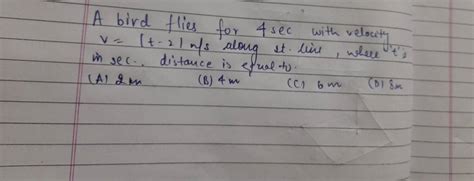 A bird flies for 4 sec with velocity
v = |t-2| m/s along st. line, where 't' is
in sec.. distance is equal to.
(A) 2m (B) 4m (C) 6m (D) 8m